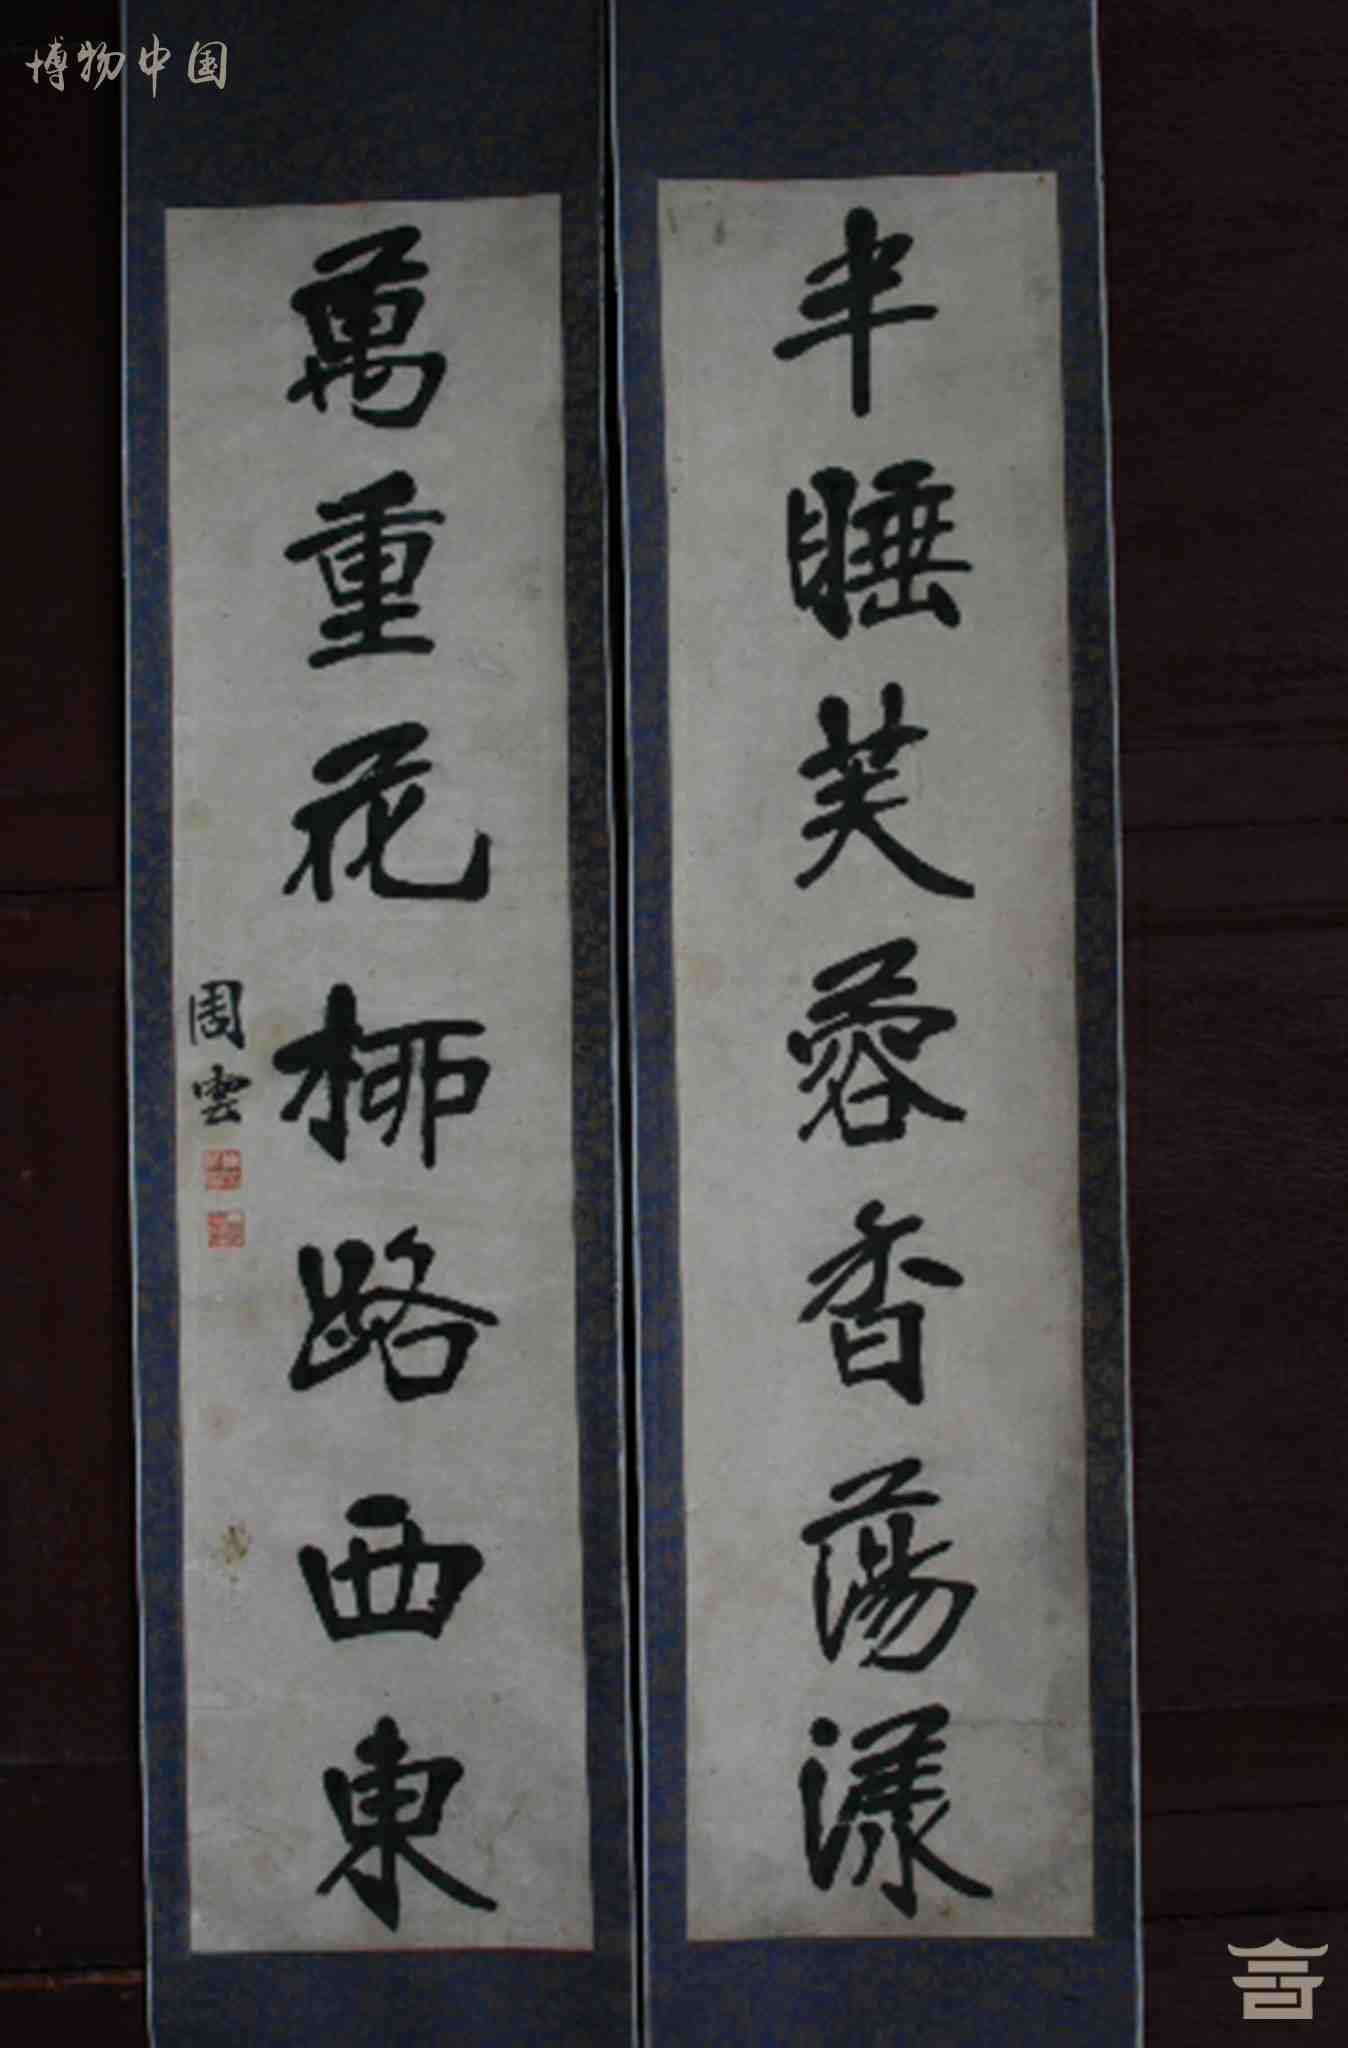 博物中国
半睡芙蓉香蕩漾
萬重花柳路西東
周雲